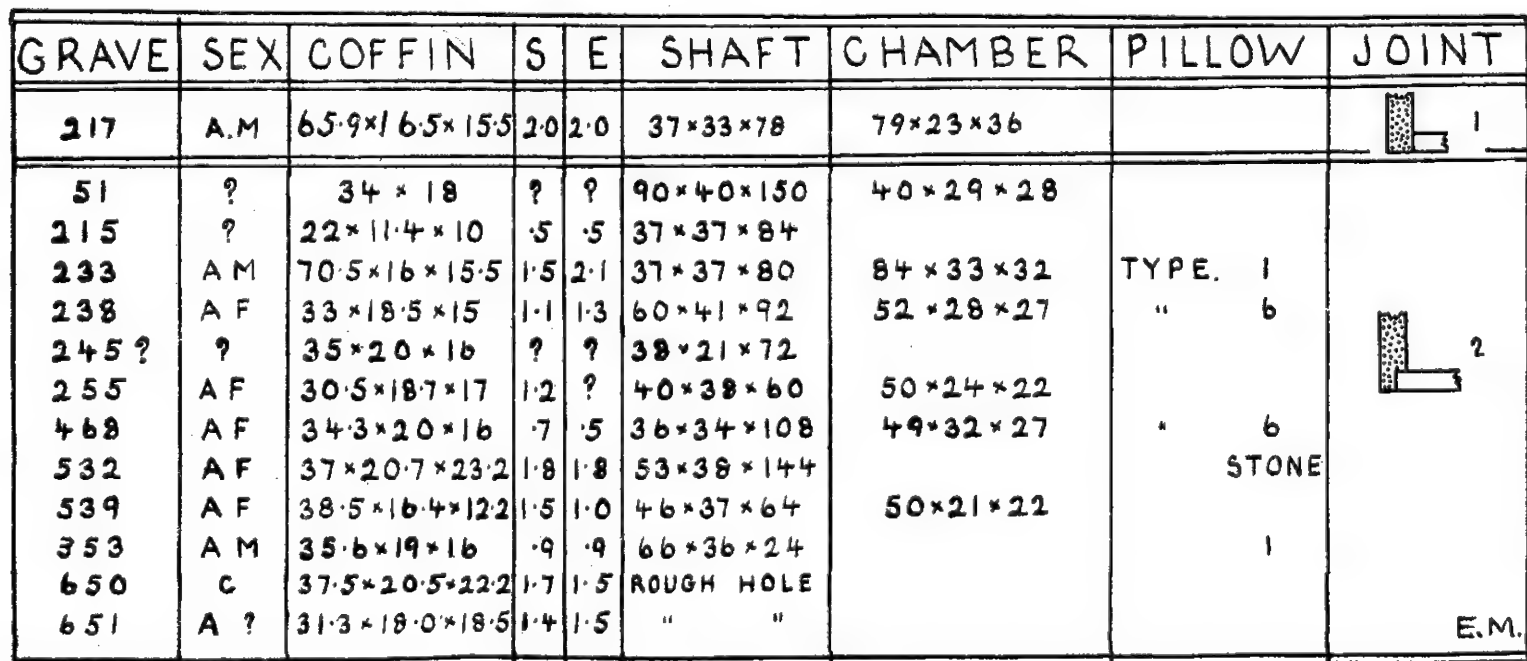 GRAVE SEX COFFIN S E SHAFT CHAMBER PILLOW JOINT
217 A.M 65·9×16·5×15·5 2·0 2·0 37×33×78 79×23×36 1
51 ? 34 × 18 ? ? 90×40×150 40×29×28
215 ? 22×11·4×10 ·5 ·5 37×37×84
233 A M 70·5×16×15·5 1·5 2·1 37×37×80 84×33×32 TYPE. 1
238 A F 33×18·5×15 1·1 1·3 60×41×92 52×28×27 " 6
245? ? 35×20×16 ? ? 38×21×72 2
255 A F 30·5×18·7×17 1·2 ? 40×38×60 50×24×22
468 A F 34·3×20×16 ·7 ·5 36×34×108 49×32×27 " 6
532 A F 37×20·7×23·2 1·8 1·8 53×38×144 STONE
539 A F 38·5×16·4×12·2 1·5 1·0 46×37×64 50×21×22
353 A M 35·6×19×16 ·9 ·9 66×36×24 1
650 C 37·5×20·5×22·2 1·7 1·5 ROUGH HOLE
651 A ? 31·3×18·0×18·5 1·4 1·5 " " E.M.